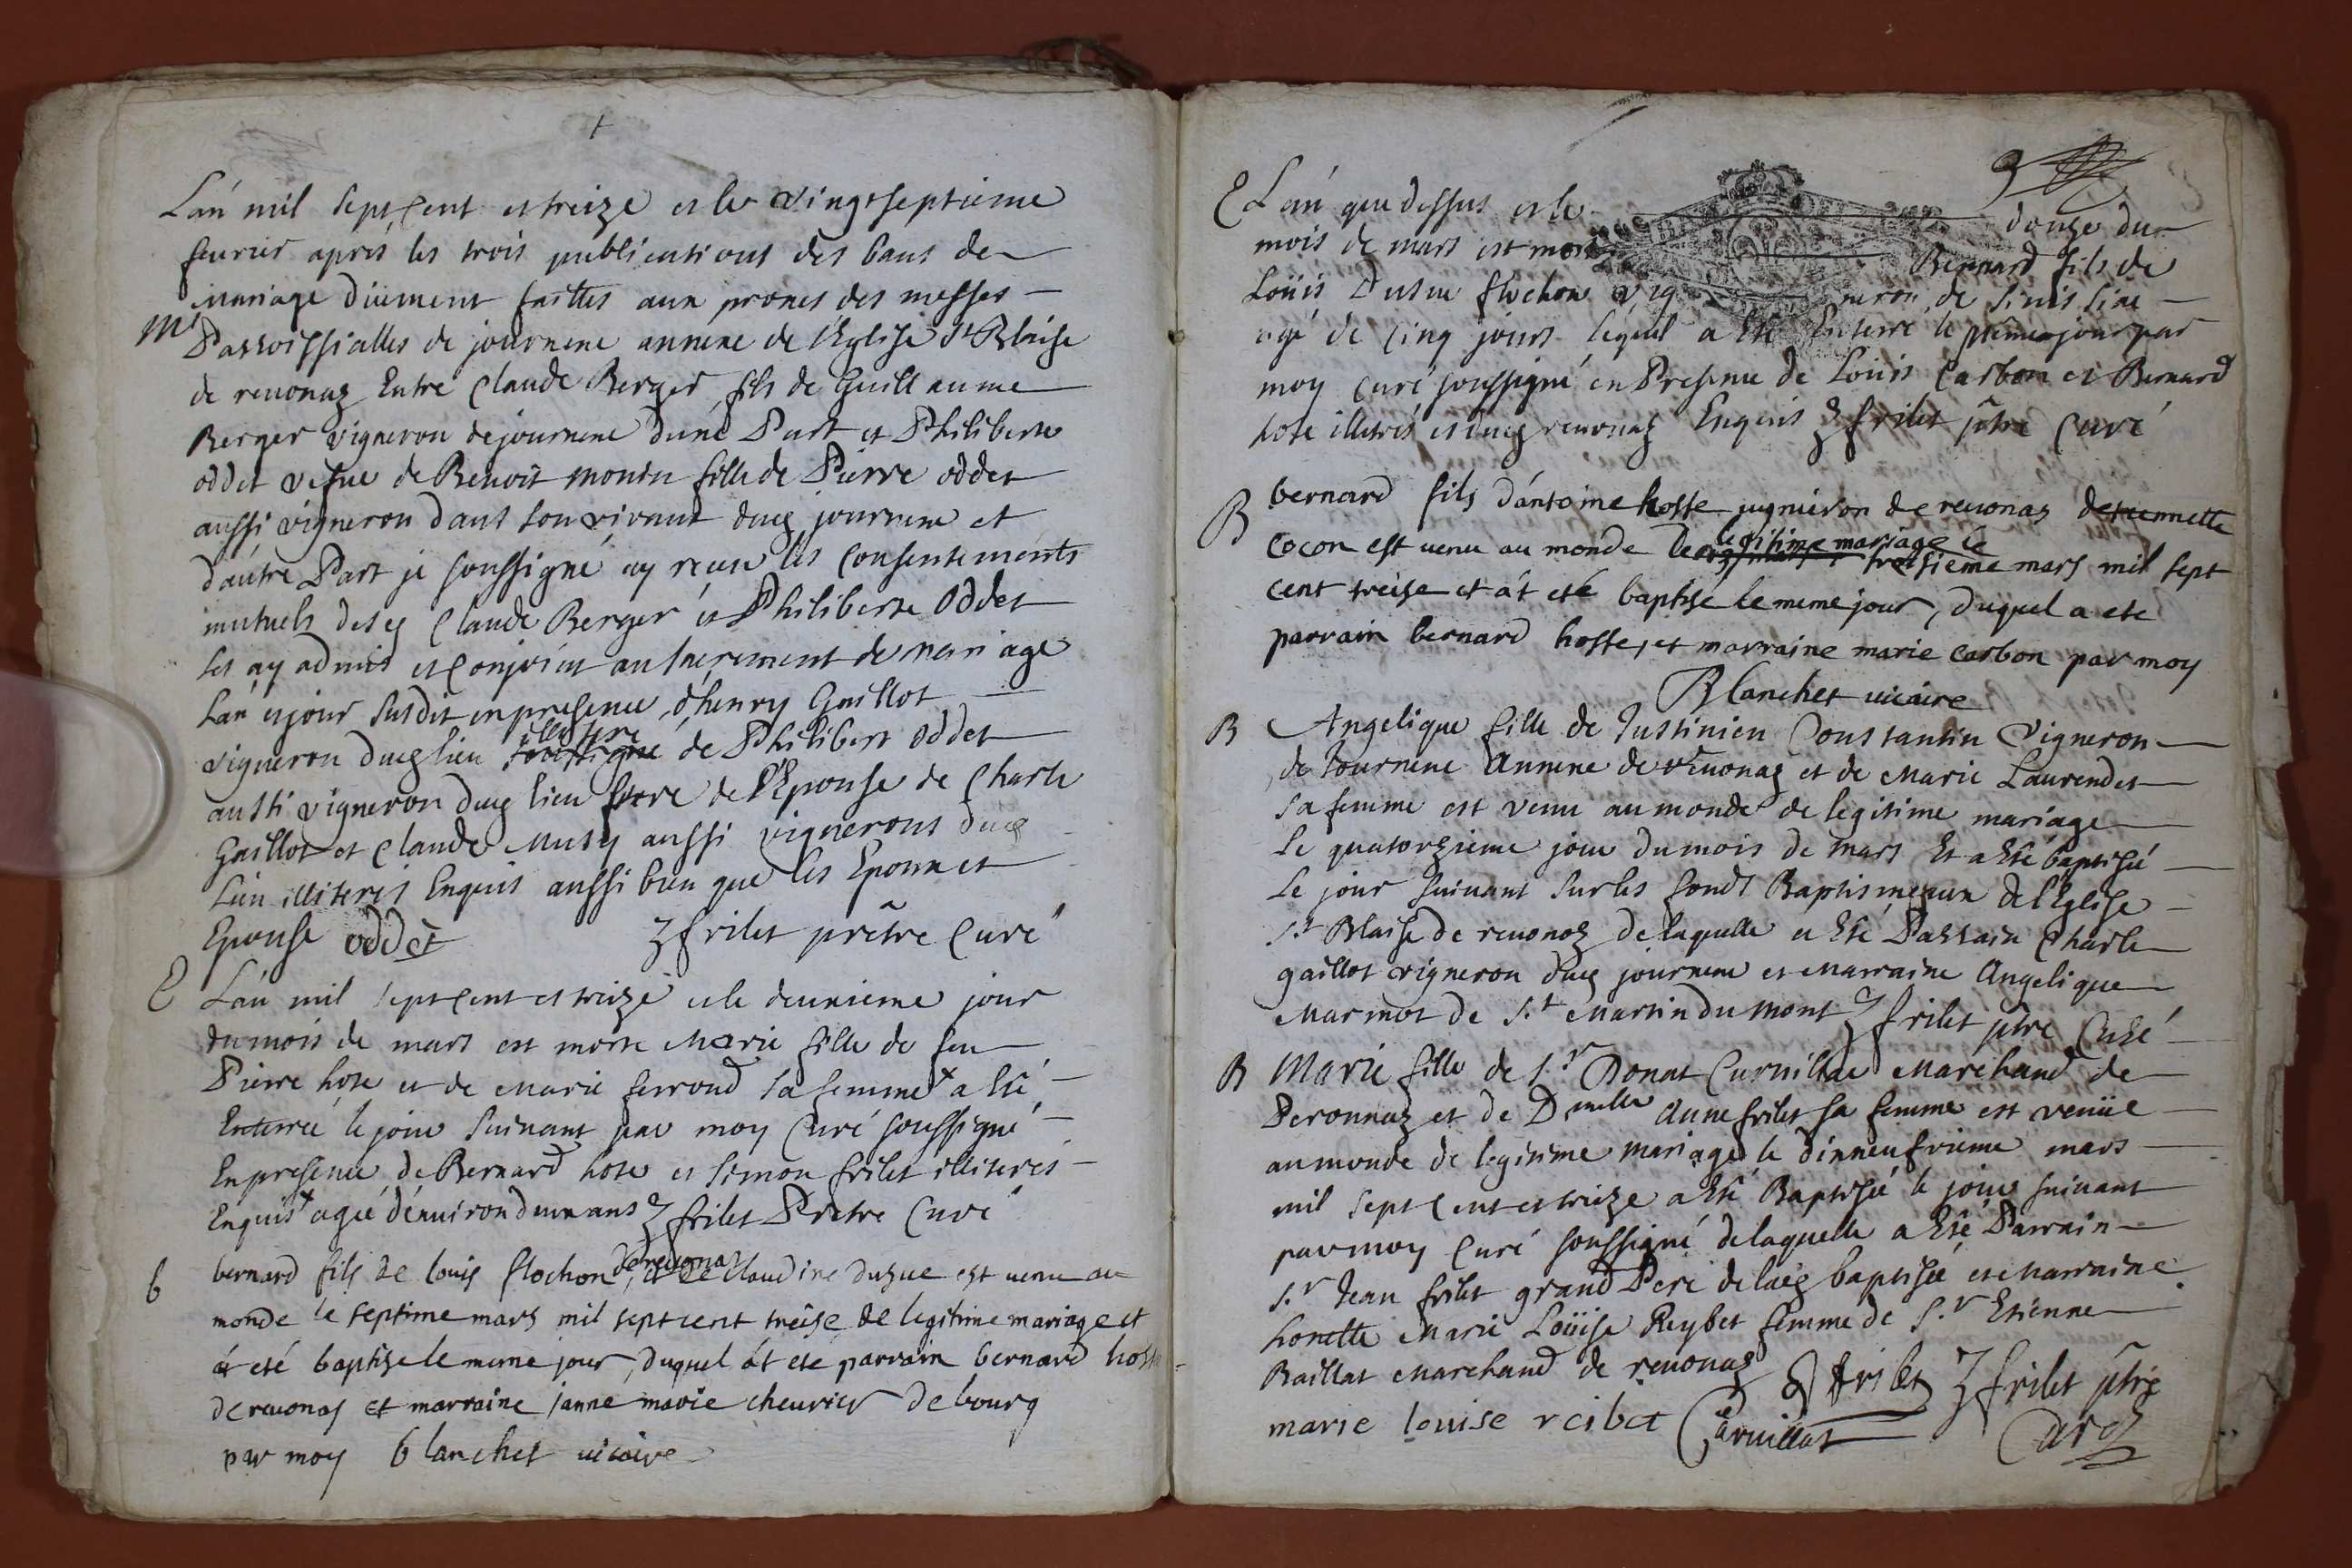 L'án mil sept cent et treize et le vingt septieme
feurier aprés les trois publications des bans de
mariage düement faittes aux prones des messes
M
Parroissialles de journene annexe de l'Eglise St Blaise
de reuonaz Entre Claude Berger fils de Guillaume
Berger vigneron de journene d'une Part et Philiberte
oddet vefue de Benoit monin fille de Pierre oddet
aussi vigneron dans son vivant dud journene et
d'autre Part je soussigné ay réceu les consentements
mutuels desd Claude Berger et Philiberte Oddet
les ay admis et Conjoint au sacrement de mariage
L'án et jour susdit en presence d'henry Gaillot
illitere
vigneron dud lieu soussigne de Philibert oddet
aussi vigneron dud lieu frere de l'Epouse de Charle
Gaillot et Claude Musy aussi vignerons dud
Lieu illiteres Enquis aussi bien que les Epoux et
Epouse oddet frilet prêtre Curé
L'án mil sept cent et treize et le deuxieme jour
du mois de mars est morte Marie fille de feu
Pierre hote et de Marie ferroud sa femme x a Esté
Enterrée le jour suiuant par moy Curé soussigné
En presence de Bernard hote et Simon frilet illiterés
Enquis x ageé d'enuiron deux ans frilet Pretre Curé
b
de reuonas
bernard fils de louis flochon, et de Claudine dusue est uenu au
monde le septime mars mil sept cent treise de legitime mariage et
át eté baptise le meme jour, duquel át ete parrain bernard hoste
de reuonas et marraine janne marie cheurier de bourg
par moy blanchet uicaire
L'án que dessus et le douze du
mois de mars est mort Bernard fils de
Loüis Dusue flochon vigneron de
agé de cinq jours lequel a Esté Enterré le même jour par
moy curé soussigné en Presence de Loüis Carbon et Bernard
hote illiterés et dud reuonaz Enquis frilet ptre Curé
B
bernard fils d'antoine hoste uigniéron de reuonas
legitime mariage le
Cocon est uenu au monde de troisieme mars mil sept
cent treise et át eté baptise le meme jour, duquel a ete
parrain bernard hoste, et marraine marie carbon par moy
Blanchet uicaire
B
Angelique fille de Justinien Constantin vigneron
de Journene Annexe de reuonaz et de Marie Laurendet
sa femme est venu au monde de legitime mariage
le quatorzieme jour du mois de mars Et a Esté baptiseé
le jour suiuant sur les fonds Baptismeaux de l'Eglise
St Blaise de reuonaz de laquelle a Esté Parrain Charle
gaillot vigneron dud journene et Marraine Angelique
Marmot de St Martin du mont frilet ptre Curé
B
Marie fille de Sr Donat Curuillat Marchand de
Peronnaz et de Dmelle Anne frilet sa femme est venüe
au monde de legitime mariage le dixneufuieme mars
mil sept cent et treize a Esté Baptiseé le jour suiuant
par moy Curé soussigné de laquelle a Esté Parrain
Sr Jean frilet grand Pere de lad baptiseé et Marraine
honette Marie Loüise Reybet femme de Sr Etienne
Baillat Marchand de reuonaz frilet frilet ptre
marie louise reibet Curé